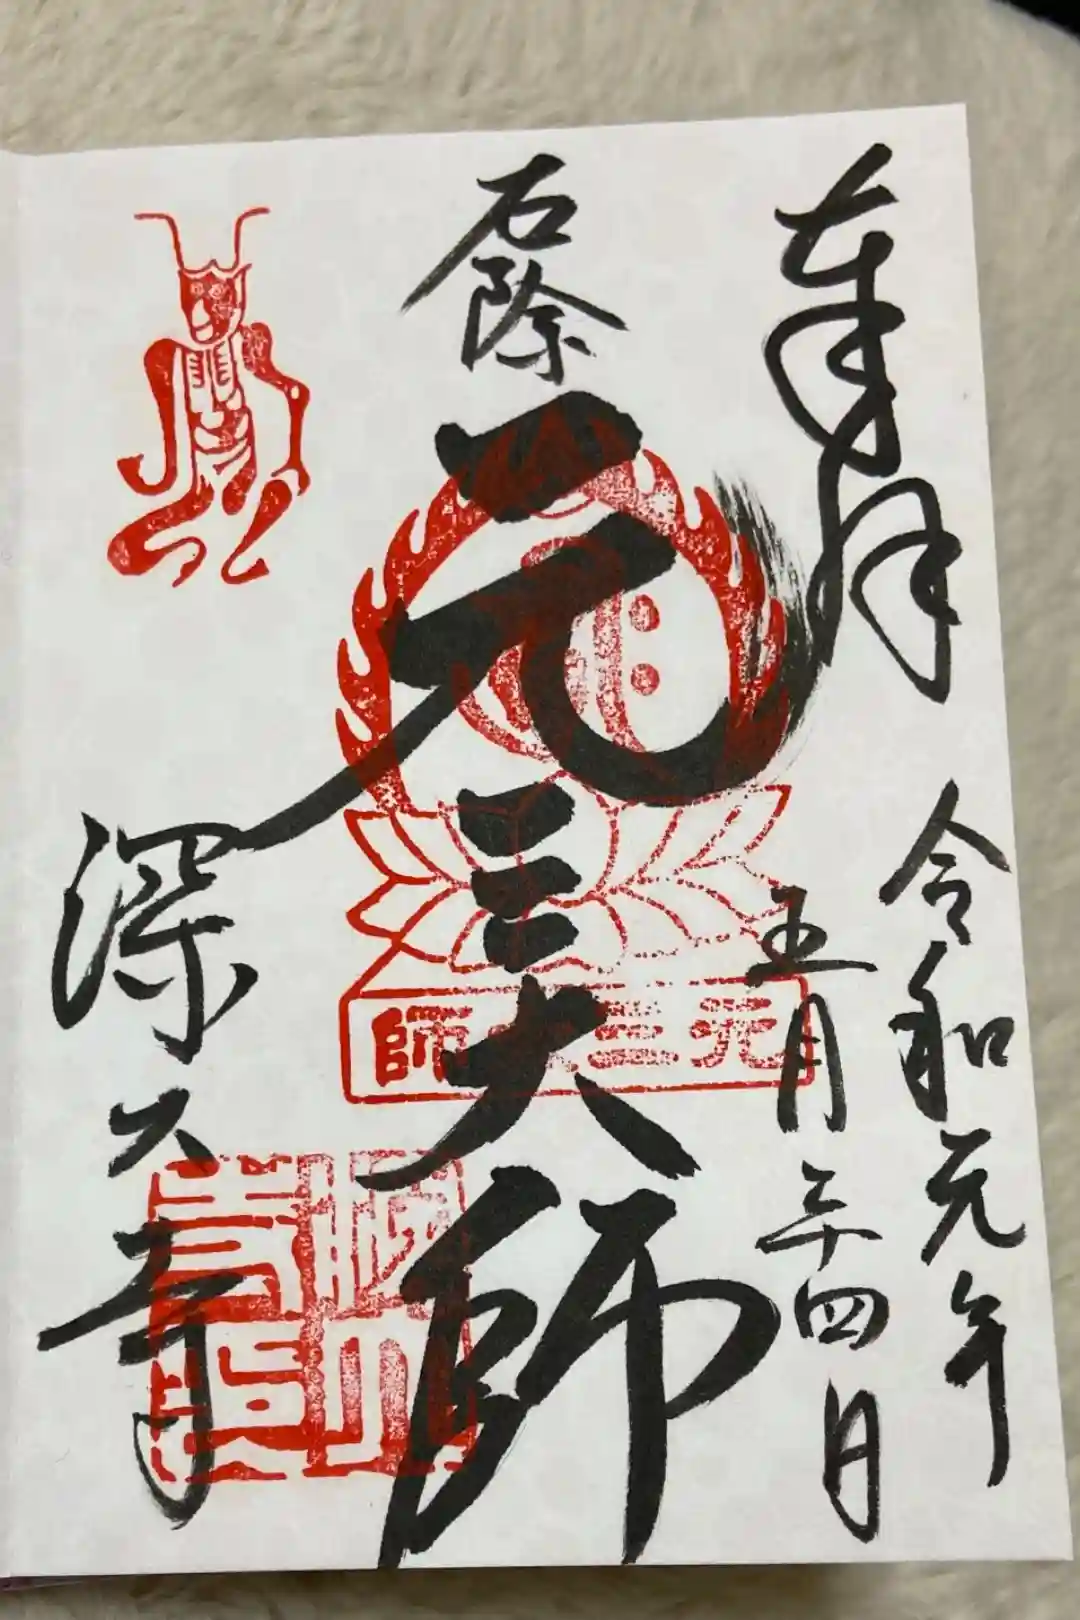 奉拝
令和元年
五月二十四日
厄除
元三大師
深大寺
元三大師
深大寺印